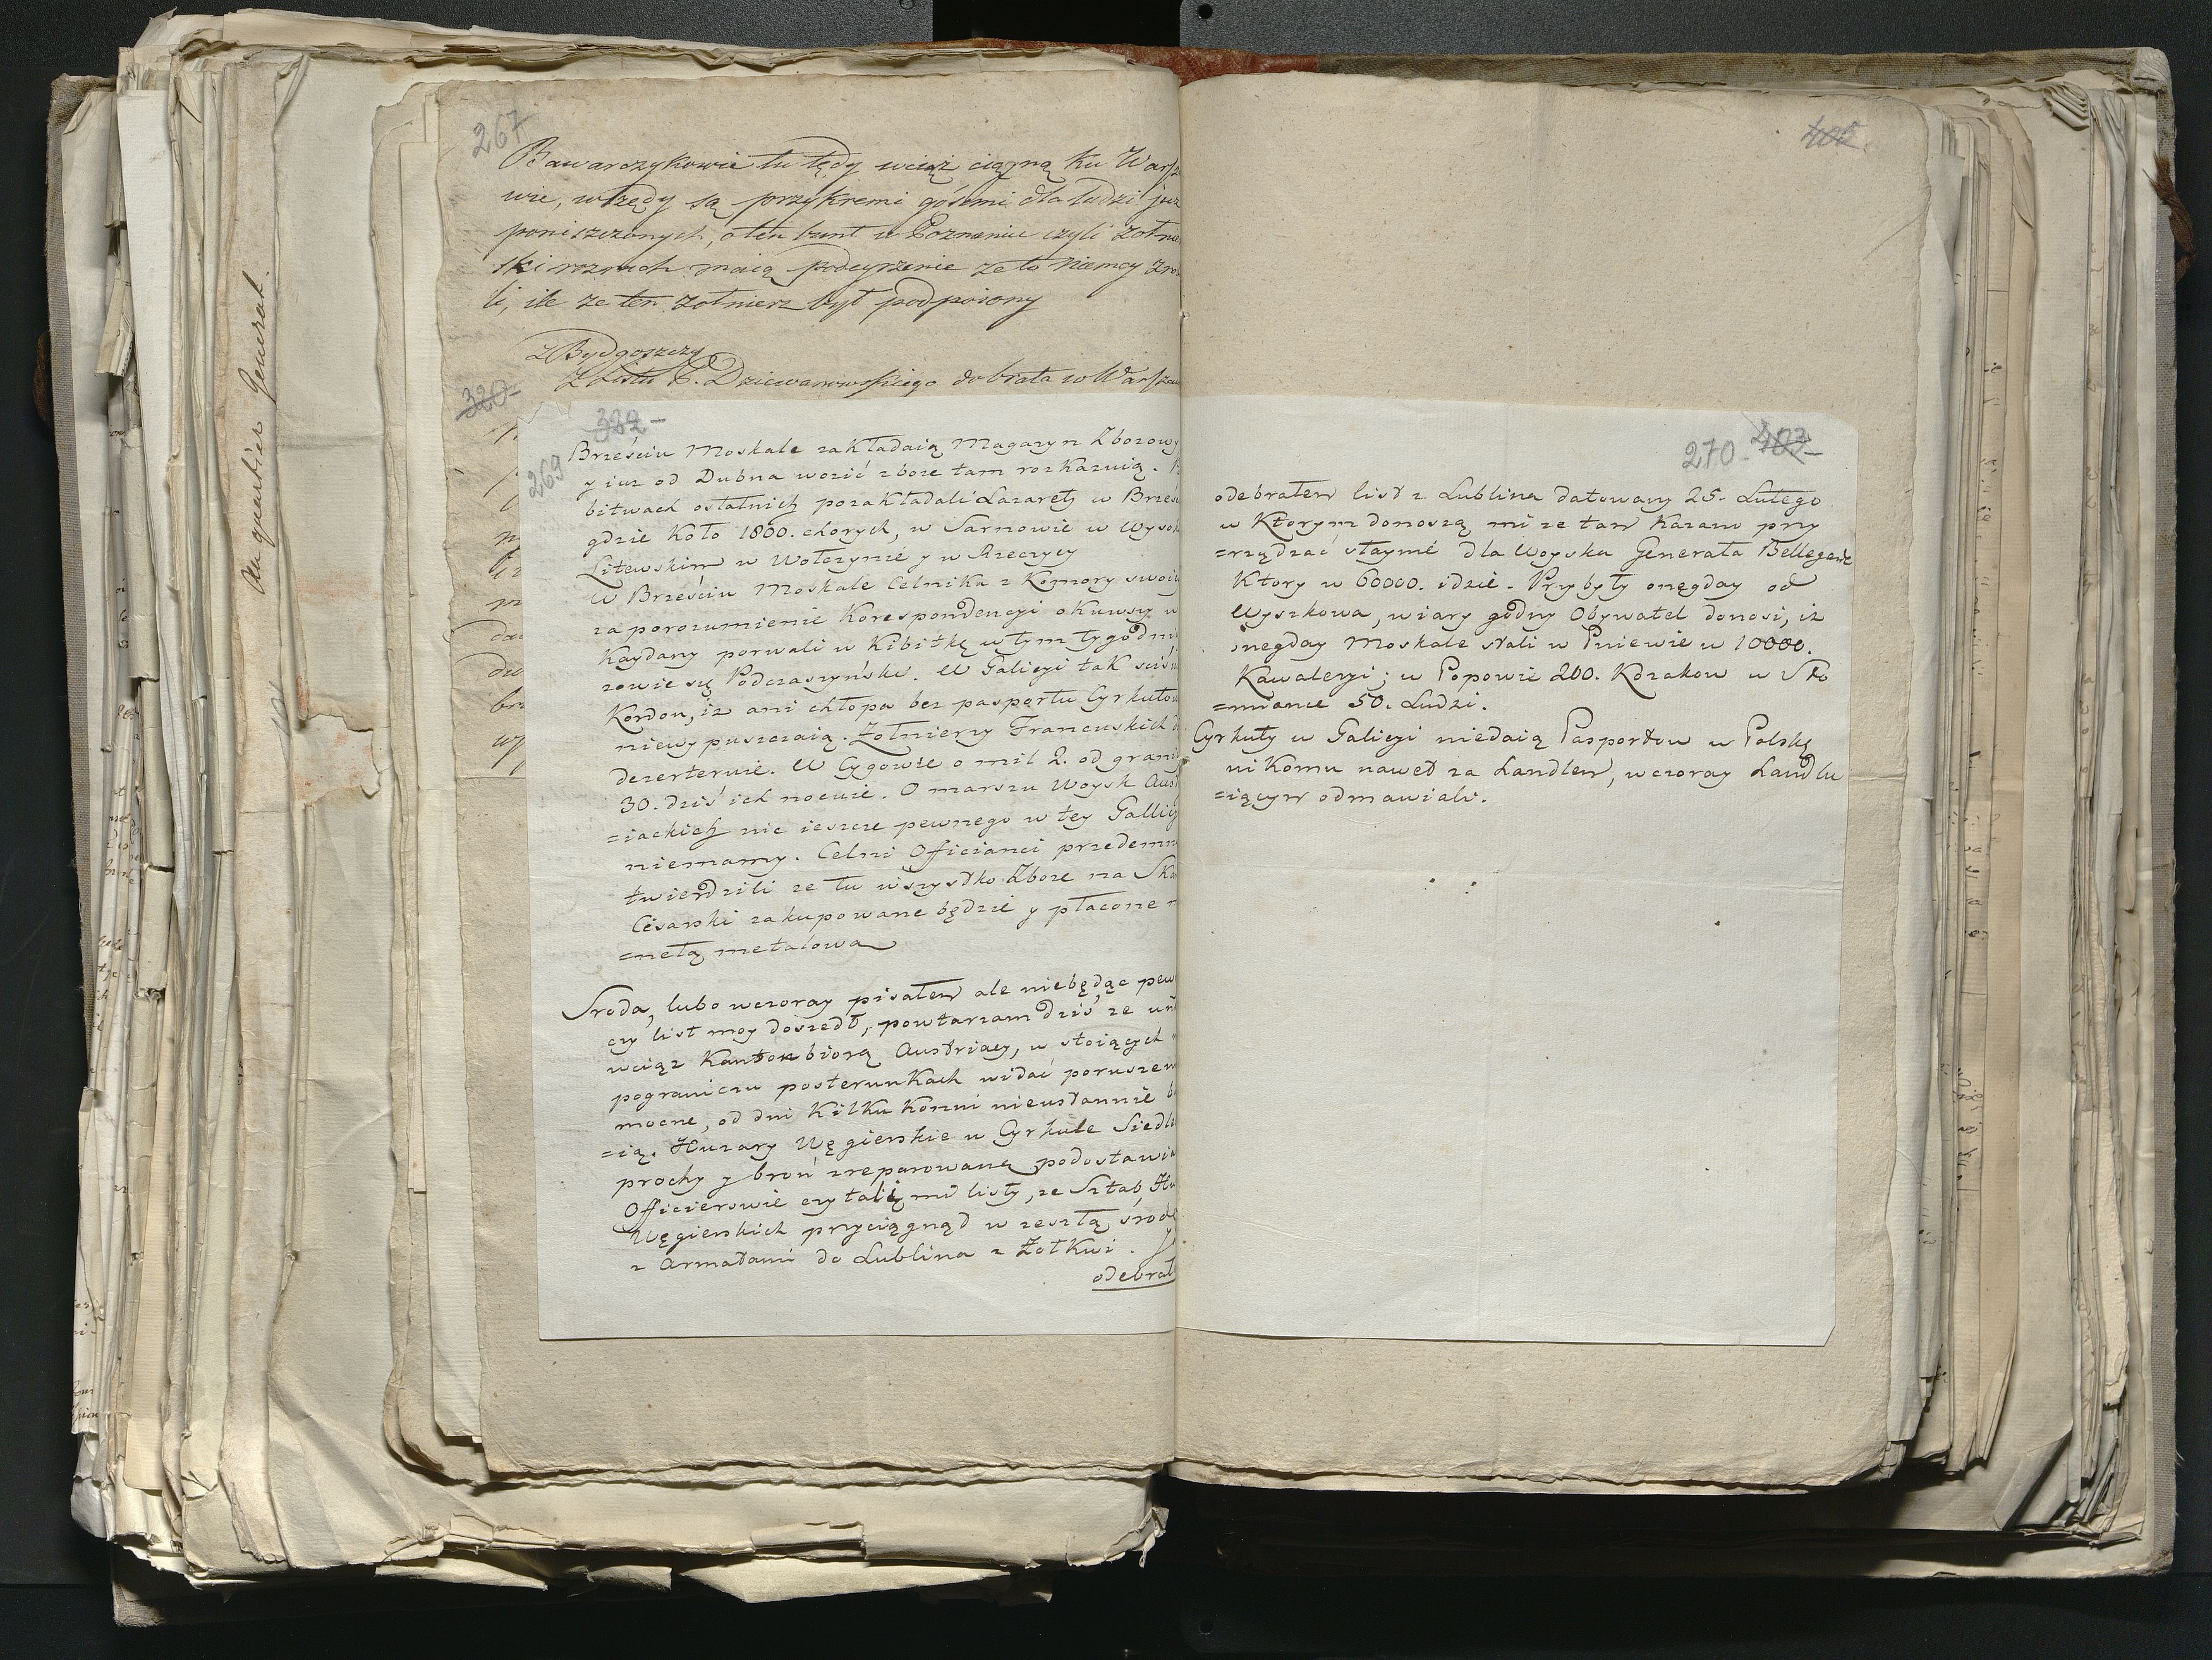 267
Bawarczykowie tu tędy wciąż ciągną ku Warsz
wie, wszędy są przykremi gośćmi dla ludzi już
poniszczonych, o ten bunt w Poznaniu czyli żołnie
ski rozruch maią podeyrzenie że to Niemcy zro
li, ile że ten żołnierz był podpoiony
z Bydgoszczy
z Listu P. Dziewanowskiego do brata w Warszaw
320-
322-
269
Brześciu Moskale zakładaią Magazyn Zbozowy
y iuz od Dubna wozić zboze tam rozkazuią.
bitwach ostatnich pozakładali Lazarety w Brześ
gdzie koło 1800. chorych, w Sarnowie w Wysok
Litewskim w Wołczynie y w Rzeczycy
W Brześciu Moskale Celnika z Komory swoi
za porozumienie Korespondencyi okuwszy w
Kaydany porwali w Kibitkę w tym tygodni
zowie się Podczaszyński. W Galicyi tak ściś
Kordon, iz ani chłopa bez pasportu Cyrkułow
niewypuszczaią. Żołnierzy Francuskich
dezerteruie. W Cygowie o mil 2. od grani
30. dziś ich nocuie. O marszu Woysk Aust
=iackich nic ieszcze pewnego w tey Gallicy
niemamy. Celni Officianci przedemn
twierdzili ze tu wszystko Zboze na Ska
Cesarski zakupowane będzie y płacone
=netą metalową
Sroda, lubo wczoray pisałem ale niebędąc pew
czy list moy doszedł, powtarzam dziś ze
wciąz Kanton biorą Austriacy, w stoiących
pograniczu posterunkach widać poruszen
mocne, od dni kilku konni nieustannie
=ią. Huzary Węgierskie w Cyrkule Siedl
prochy y broń zreparowaną podostawia
Officierowie czytali mi listy, ze Sztab Hu
Węgierskich przyciągnął w zeszłą środę
z Armatami do Lublina z Żołkwi.
odebrał
270. 403-
odebrałem list z Lublina datowany 25. Lutego
w ktorym donoszą mi ze tam kazano przy
=rządzać staynie dla Woyska Generała Bellegarde
Ktory w 60000. idzie. Przybyły onegday od
Wyszkowa, wiary godny Obywatel donosi, iz
onegday Moskale stali w Pniewie w 10000.
Kawaleryi; w Popowie 200. Kozakow w Sło
=miance 50. Ludzi.
Cyrkuły w Galicyi niedaią Pasportow w Polskę
nikomu nawet za handlem, wczoray handlu
=iącym odmawiali.